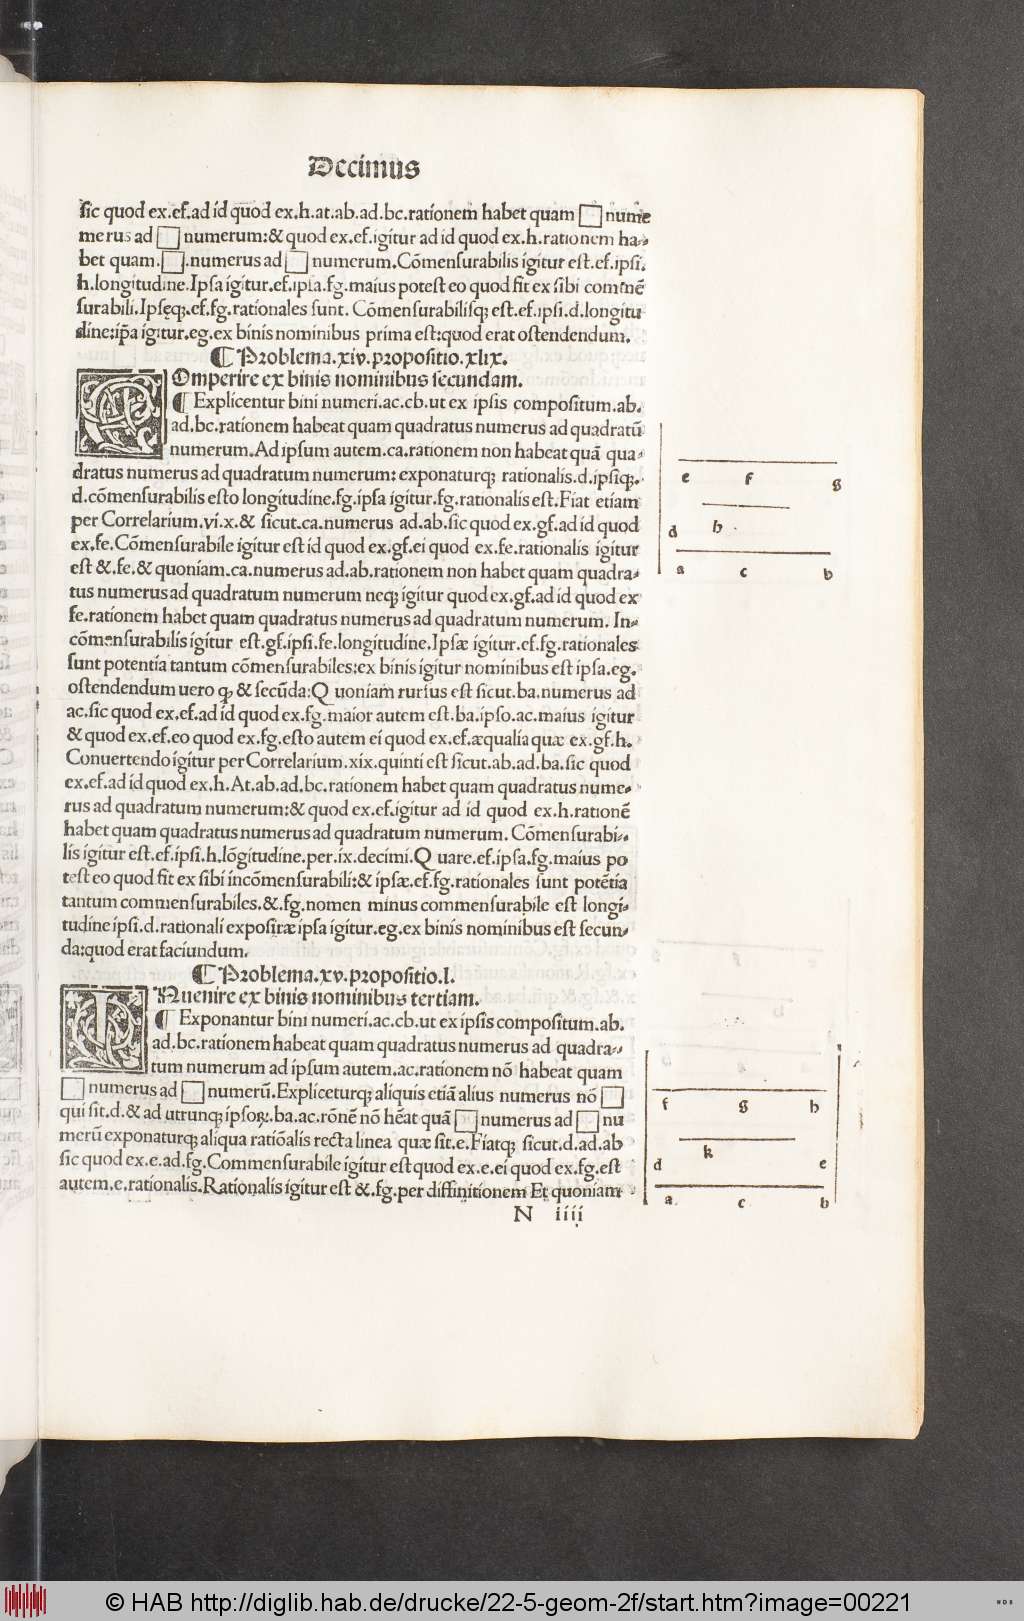 Decimus
sic quod ex.ef.ad id quod ex.h.at.ab.ad.bc.rationem habet quam □ nume
merus ad □ numerum:& quod ex.ef.igitur ad id quod ex.h.rationem ha⸗
bet quam.□.numerus ad □ numerum.Cōmensurabilis igitur est.ef.ipsi.
h.longitudine.Ipsa igitur.ef.ipsa.fg.maius potest eo quod fit ex sibi commē
surabili.Ipseq;.ef.fg.rationales sunt. Cōmensurabilisq; est.ef.ipsi.d.longitu
dine:ip̄a igitur.eg.ex binis nominibus prima est:quod erat ostendendum.
¶ Problema.xiv.propositio.xlix.
COmperire ex binis nominibus secundam.
¶ Explicentur bini numeri.ac.cb.ut ex ipsis compositum.ab.
ad.bc.rationem habeat quam quadratus numerus ad quadratū
numerum.Ad ipsum autem.ca.rationem non habeat quā qua⸗
dratus numerus ad quadratum numerum: exponaturq; rationalis.d.ipsiq;.
d.cōmensurabilis esto longitudine.fg.ipsa igitur.fg.rationalis est.Fiat etiam
per Correlarium.vi.x.& sicut.ca.numerus ad.ab.sic quod ex.gf.ad id quod
ex.fe.Cōmensurabile igitur est id quod ex.gf.ei quod ex.fe.rationalis igitur
est &.fe.& quoniam.ca.numerus ad.ab.rationem non habet quam quadra⸗
tus numerus ad quadratum numerum neq; igitur quod ex.gf.ad id quod ex
fe.rationem habet quam quadratus numerus ad quadratum numerum. In⸗
cōmensurabilis igitur est.gf.ipsi.fe.longitudine.Ipsæ igitur.ef.fg.rationales
sunt potentia tantum cōmensurabiles:ex binis igitur nominibus est ipsa.eg.
ostendendum uero q; & secūda:Q uoniam rursus est sicut.ba.numerus ad
ac.sic quod ex.ef.ad id quod ex.fg.maior autem est.ba.ipso.ac.maius igitur
& quod ex.ef.eo quod ex.fg.esto autem ei quod ex.ef.æqualia quæ ex.gf.h.
Conuertendo igitur per Correlarium.xix.quinti est sicut.ab.ad.ba.sic quod
ex.ef.ad id quod ex.h.At.ab.ad.bc.rationem habet quam quadratus nume⸗
rus ad quadratum numerum:& quod ex.ef.igitur ad id quod ex.h.rationē
habet quam quadratus numerus ad quadratum numerum. Cōmensurabi⸗
lis igitur est.ef.ipsi.h.lōgitudine.per.ix.decimi.Q uare.ef.ipsa.fg.maius po
test eo quod fit ex sibi incōmensurabili:& ipsæ.ef.fg.rationales sunt potētia
tantum commensurabiles.&.fg.nomen minus commensurabile est longi⸗
tudine ipsi.d.rationali expositæ ipsa igitur.eg.ex binis nominibus est secun⸗
da:quod erat faciundum.
¶ Problema.xv.propositio.l.
INuenire ex binis nominibus tertiam.
¶ Exponantur bini numeri.ac.cb.ut ex ipsis compositum.ab.
ad.bc.rationem habeat quam quadratus numerus ad quadra⸗
tum numerum ad ipsum autem.ac.rationem nō habeat quam
□ numerus ad □ numerū.Expliceturq; aliquis etiā alius numerus nō □
qui sit.d.& ad utrunq; ipsoꝝ.ba.ac.rōnē nō hēat quā □ numerus ad □ nu
merū exponaturq; aliqua ratiōalis recta linea quæ sit.e.Fiatq; sicut.d.ad.ab
sic quod ex.e.ad.fg.Commensurabile igitur est quod ex.e.ei quod ex.fg.est
autem.e.rationalis.Rationalis igitur est &.fg.per diffinitionem Et quoniam
N iiii
e f g
d h
a c b
f g h
k
d e
a c b
© HAB http://diglib.hab.de/drucke/22-5-geom-2f/start.htm?image=00221